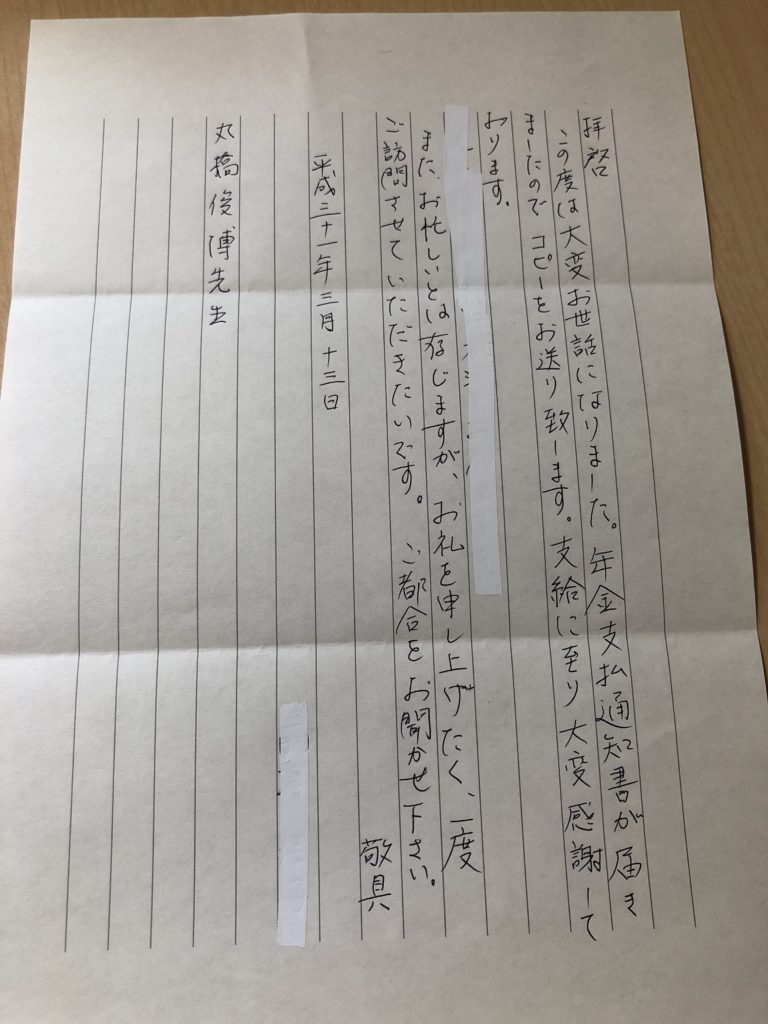 拝啓
この度は大変お世話になりました。年金支払通知書が届き
ましたのでコピーをお送り致します。支給に至り大変感謝して
おります。
また、お忙しいとは存じますが、お礼を申し上げたく、一度
ご訪問させていただきたいです。ご都合をお聞かせ下さい。
敬具
平成三十一年三月十三日
丸橋俊博先生